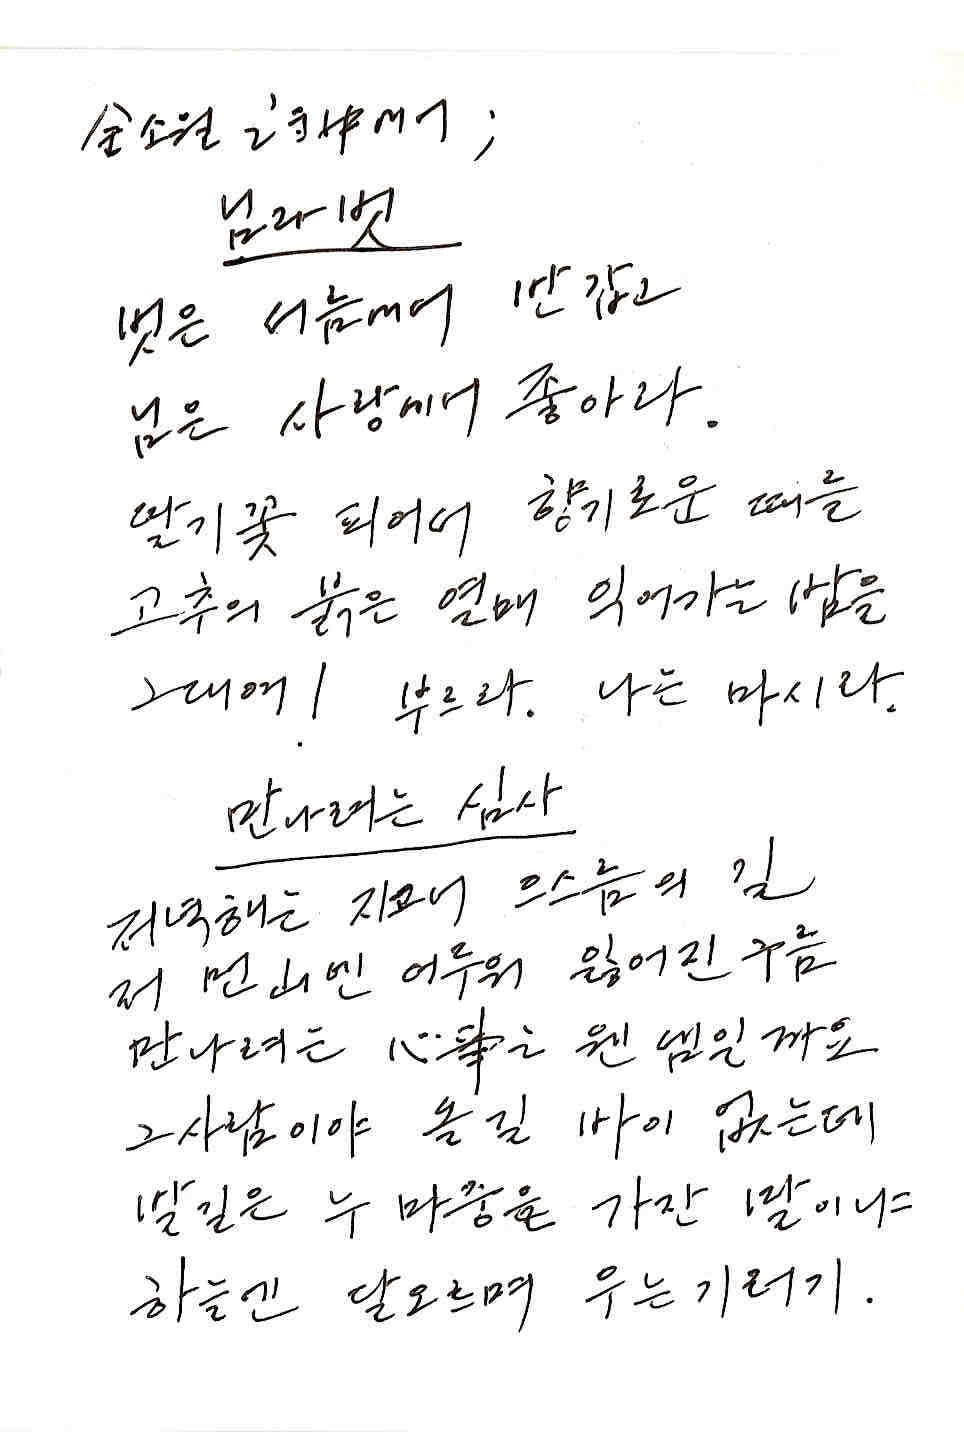 金소월 에서;
님과벗
벗은 서름에서 반갑고
님은 사랑에서 좋아라.
딸기꽃 피어서 향기로운 때를
고추의 붉은 열매 익어가는 밤을
그대여! 부르라. 나는 마시라.
만나려는 심사
저녁해는 지고서 으스름의 길
저 먼山엔 어두워 잃어진 구름
만나려는 心事는 웬 셈일까요
그사람이야 올길 바이 없는데
발길은 누 마중을 가잔 말이냐
하늘엔 달오르며 우는기러기.